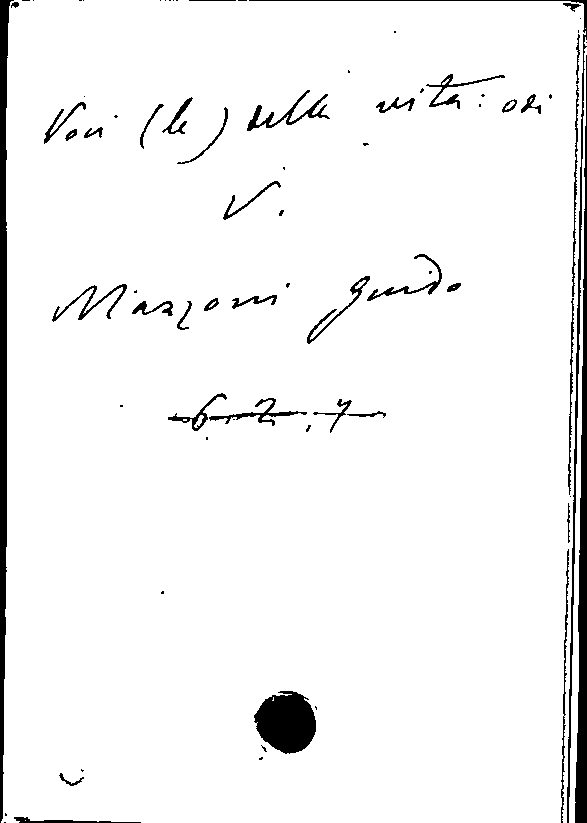 Voci (le) della vita: odi
V.
Mazzoni Guido
6.2.7